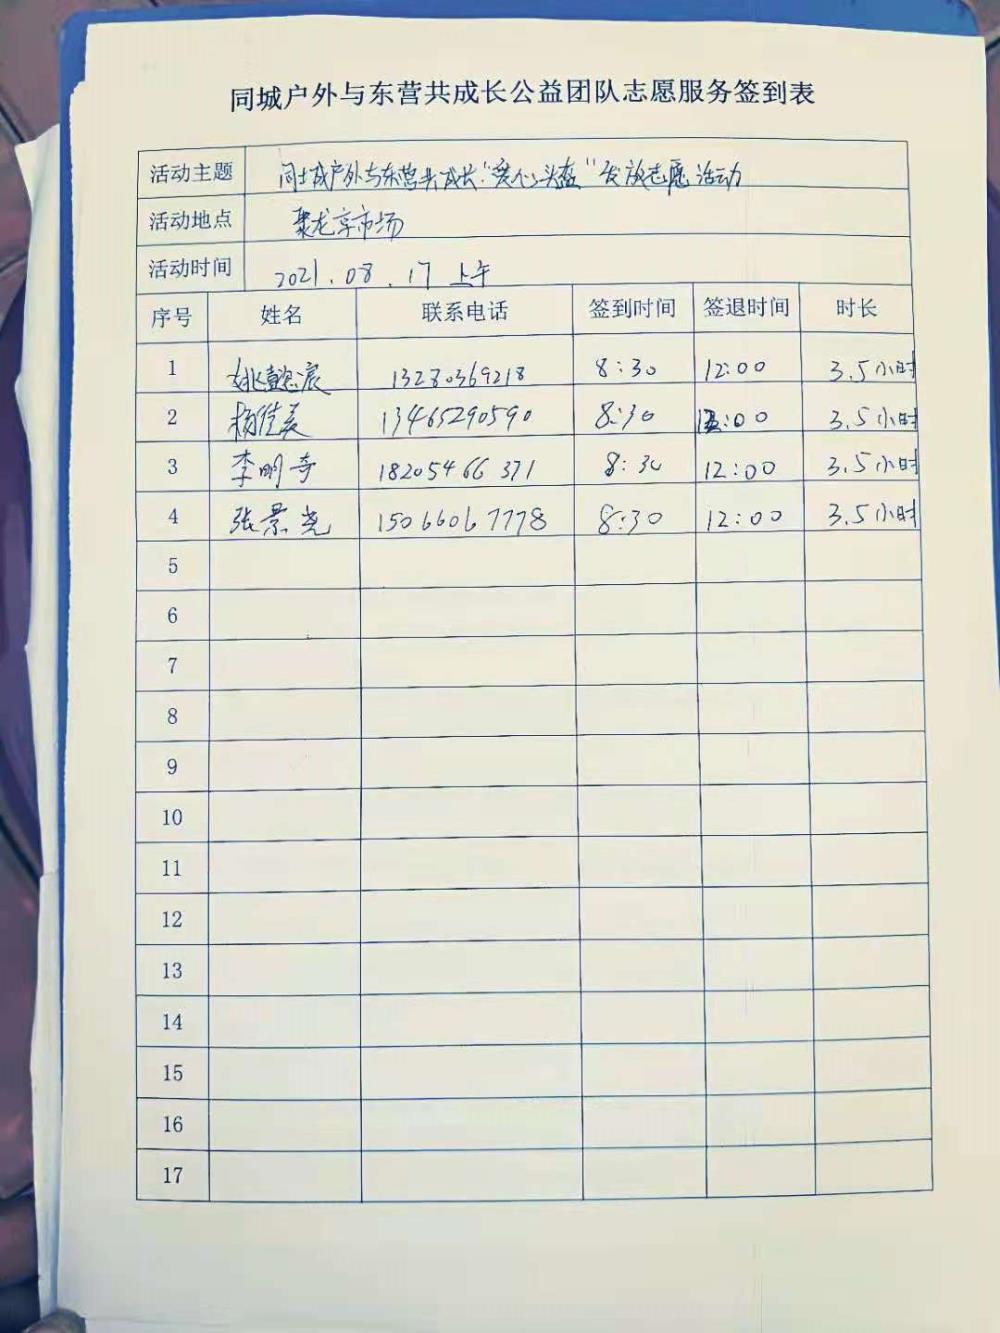 同城户外与东营共成长公益团队志愿服务签到表
活动主题 同城户外与东营共成长"爱心头盔"发放志愿活动
活动地点 聚龙亭市场
活动时间 2021.08.17 上午
序号 姓名 联系电话 签到时间 签退时间 时长
1 姚懿宸 13280369218 8:30 12:00 3.5小时
2 杨佳美 13465290590 8:30 12:00 3.5小时
3 李明奇 18205466371 8:30 12:00 3.5小时
4 张景尧 15066067778 8:30 12:00 3.5小时
5
6
7
8
9
10
11
12
13
14
15
16
17